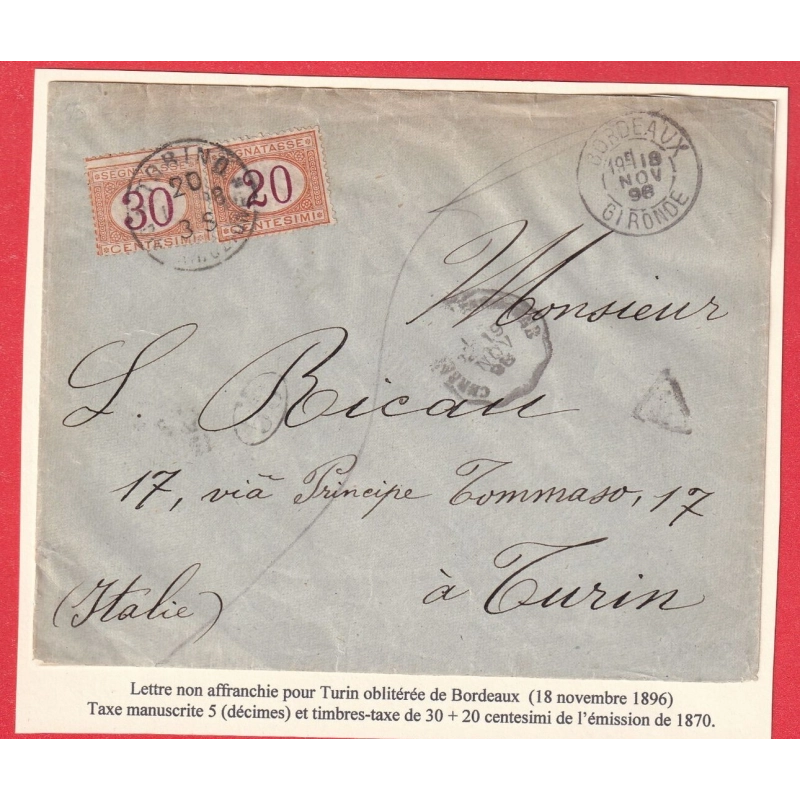 SEGNATASSE
30
CENTESIMI
SEGNATASSE
20
CENTESIMI
TORINO
20
98
3 S
BORDEAUX
18
NOV
98
GIRONDE
19
NOV
98
Monsieur
L. Bicau
17, viā Principe Tommaso, 17
à Turin
(Italie)
Lettre non affranchie pour Turin oblitérée de Bordeaux (18 novembre 1896)
Taxe manuscrite 5 (décimes) et timbres-taxe de 30 + 20 centesimi de l'émission de 1870.